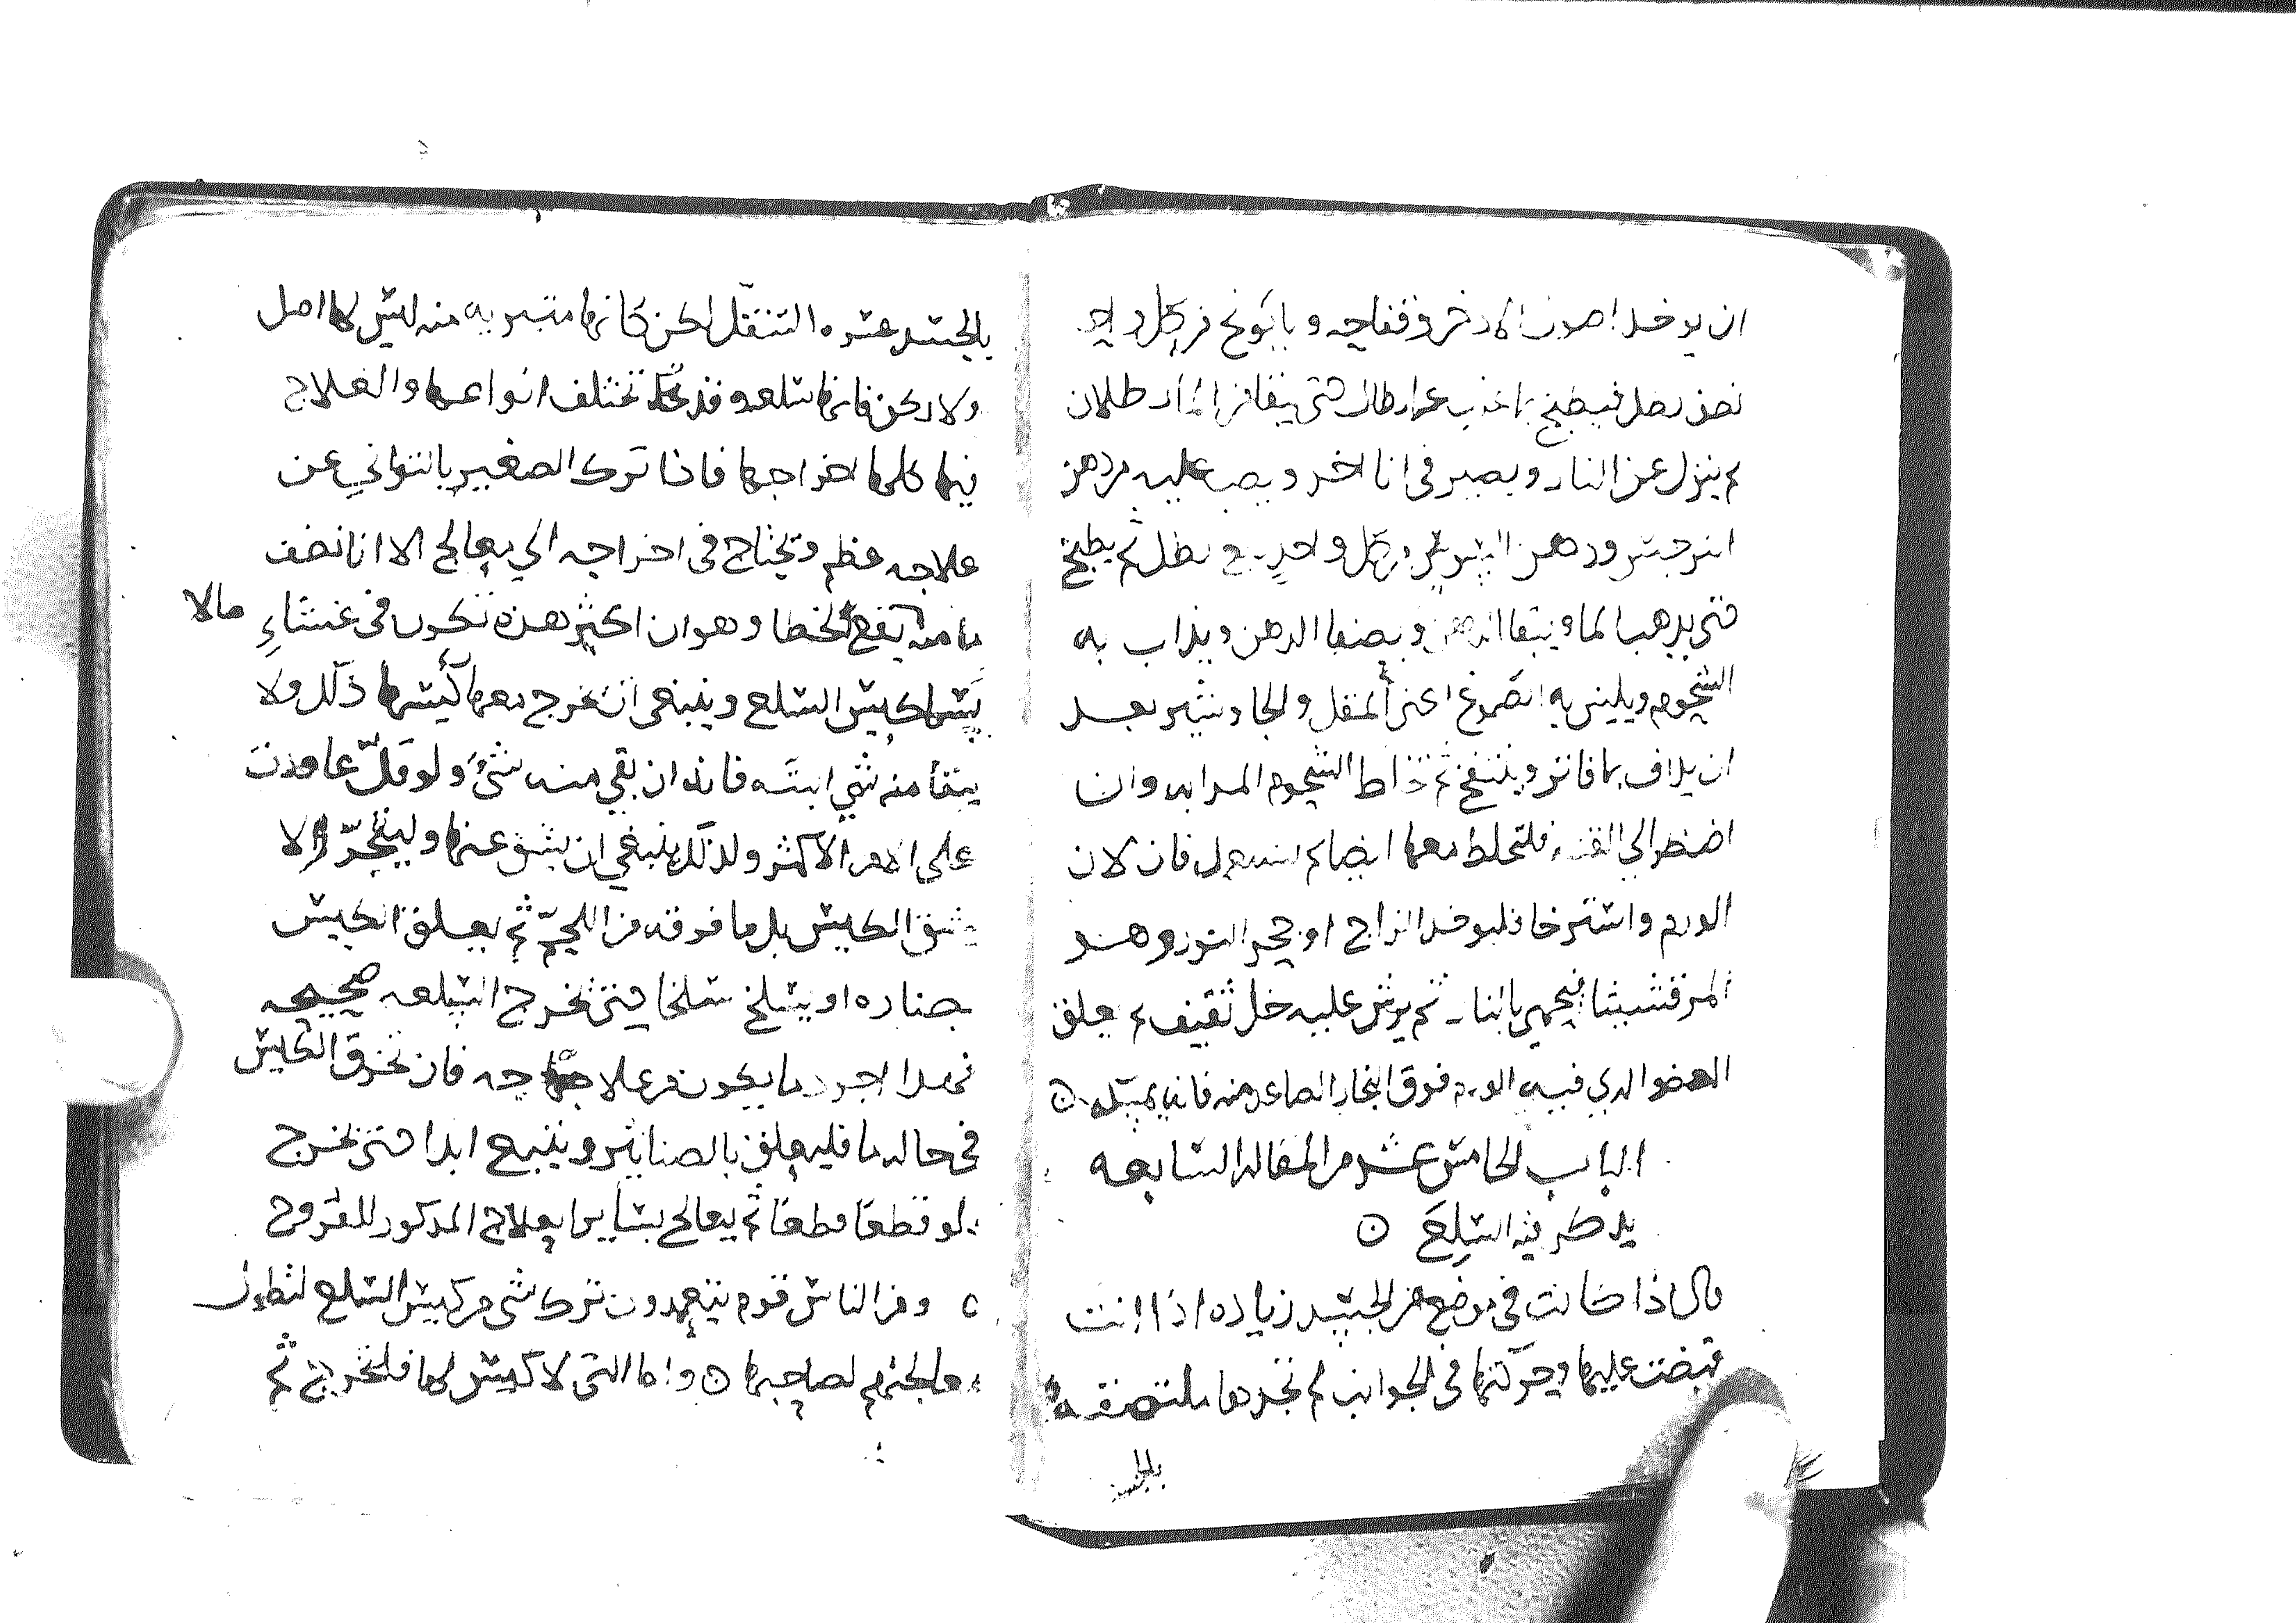 ان يوخذ اصول الاذخر وفقاحه وبابونج من كل واحد
نصف رطل فيطبخ بما عذب ارطال حتى يبقا من الما رطلان
ثم ينزل عن النار ويصير في انا اخر ويصب عليه من دهن
النرجس ودهن من كل واحد رطل ثم يطبخ
حتى يذهب الما ويبقا الدهن ويصفا الدهن ويذاب به
الشحوم ويلين به الصموغ اعني المقل والجاوشير بعد
ان يذاف بما فاتر وينتفخ ثم تخلط الشحوم المذابه وان
اضطر الي القنه فلتخلط معها ايضا ثم يستعمل فان لان
الورم واسترخا فليوخذ الزاج او حجر النوره
المرقشيثا فيحمى بالنار ثم يرش عليه خل ثقيف ثم يعلق
العضو الدي فيه الورم فوق البخار الصاعد منه فانه يحلله
الباب الخامس عشر من المقاله السابعه
يذكر فيه السلع
قال اذا كانت في موضع من الجسد زياده اذا انت
قبضت عليها وحركتها في الجوانب لم تجدها ملتصقه
بالجسد
بالجسد عسره التنقل لكن كانها متبريه منه ليس لها اصل
ولا ركن فانها سلعه وقد تختلف انواعها والعلاج
فيها كلها اخراجها فاذا ترك الصغير بالتواني عن
علاجه عظم وتحتاج في اخراجه الي يعالج الا انا نصف
ما منه يقع الخطا وهو ان اكثر هذه تكون في غشاء مالا
يسما كيس السلع وينبغي ان تخرج معها كيسها ذلك ولا
يبقا منه شي البتّه فانه ان بقي منه شئ ولو قلّ عاودت
على الامر الاكثر ولذلك ينبغي ان يشق عنها وليتحرّ الا
يشق الكيس بل ما فوقه من اللحم ثم يعلق الكيس
بصناره او يسلخ سلخا حتى تخرج السلعه صحيحه
فهذا اجود ما يكون من علاجه فان تخرق الكيس
في حاله ما فليعلق بالصنانير ويتبع ابدا حتى تخرج
ولو قطعا قطعا ثم يعالج بسايرها بعلاج المذكور للقروح
ومن الناس قوم يتعمدون ترك شي من كيس السلع لتطول
معالجتهم لصاحبها واما التي لا كيس لها فلتخرج ثم